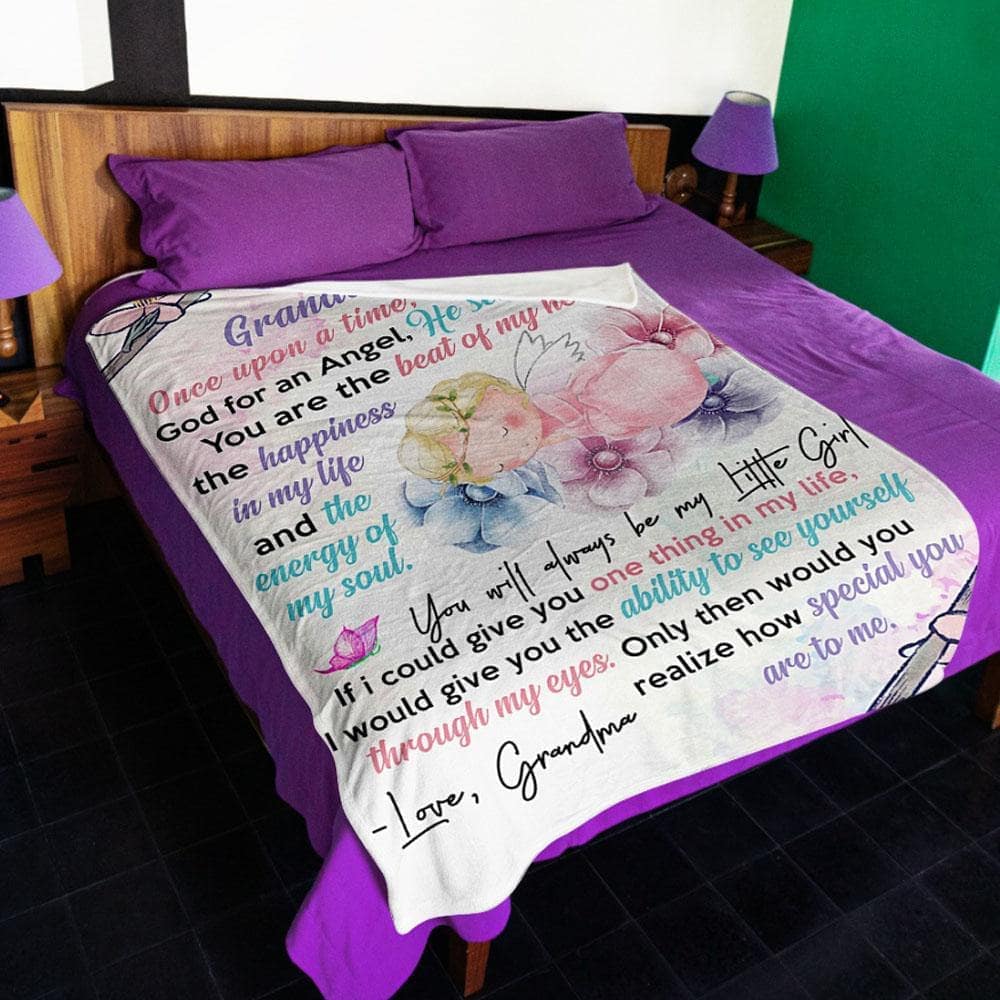 Once upon a time,
God for an Angel, He
You are the beat of my
the happiness
in my life
and the
energy of
my soul.
You will always be my Little Girl
If i could give you one thing in my life,
I would give you the ability to see yourself
through my eyes. Only then would you
realize how special you
are to me.
-Love, Grandma